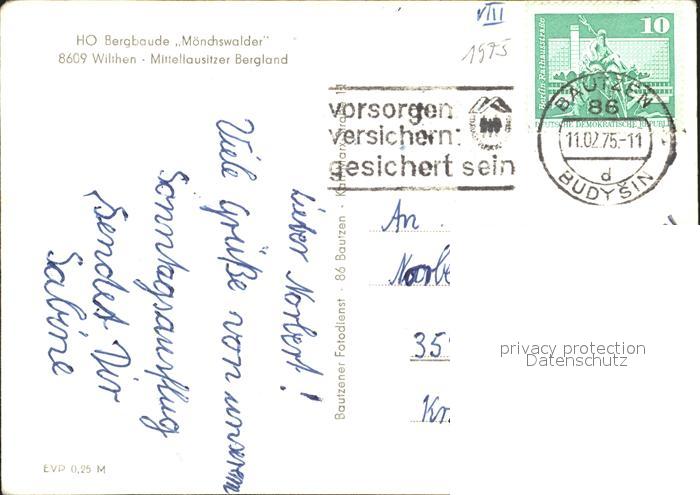 HO Bergbaude „Mönchswalder"
8609 Wilthen · Mittellausitzer Bergland
VIII
1975
Berlin-Rathausstraße
10
DEUTSCHE DEMOKRATISCHE REPUBLIK
vorsorgen
versichern:
gesichert sein
BAUTZEN
86
11.02.75.-11
d
BUDYŠIN
Lieber Norbert!
Viele Grüße von unserem
Sonntagsausflug
Sendet Dir
Sabine
Bautzener Fotodienst · 86 Bautzen · Karl-Marx-Straße
An
35
EVP 0,25 M
privacy protection
Datenschutz